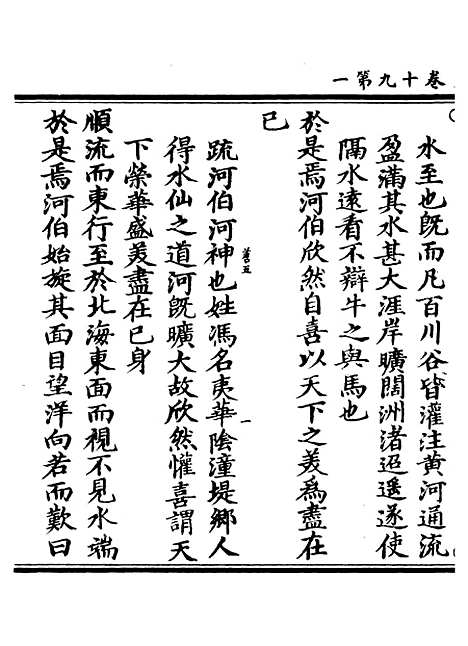 一第九十卷
水至也既而凡百川谷皆灌注黄河通流
盈滿其水甚大涯岸曠闊洲渚迢遥遂使
隔水遠看不辯牛之與馬也
於是焉河伯欣然自喜以天下之美爲盡在
已
疏河伯河神也姓馮名夷華陰潼堤鄉人
得水仙之道河既曠大故欣然懽喜謂天
下榮華盛美盡在已身
順流而東行至於北海東面而視不見水端
於是焉河伯始旋其面目望洋向若而歎曰